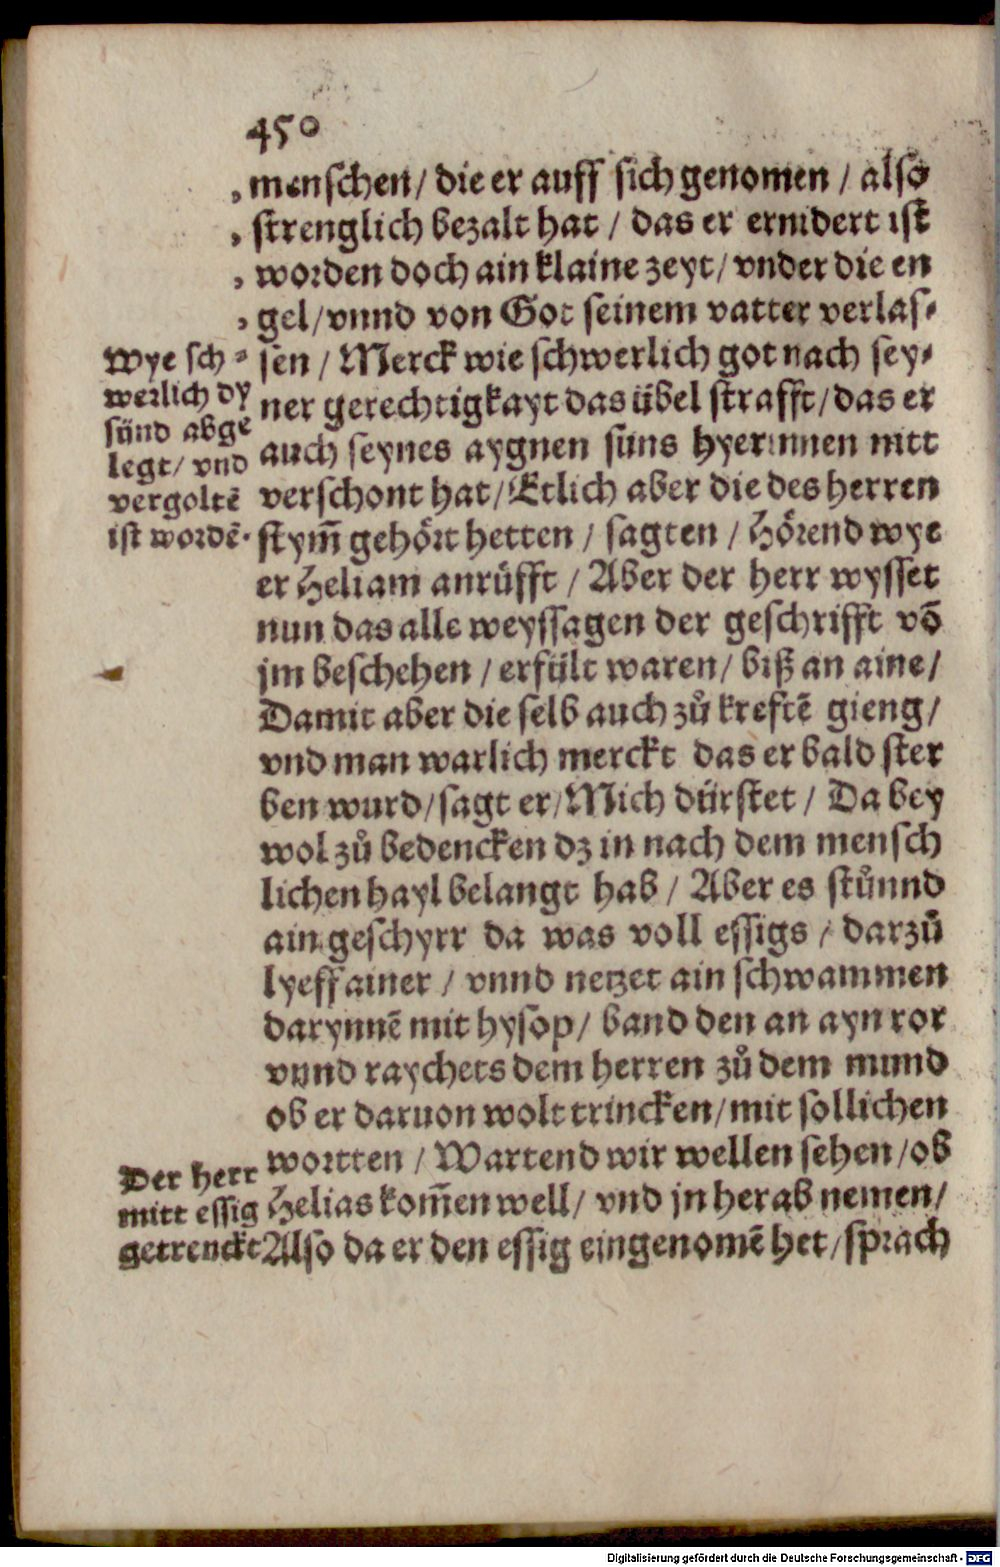 450
menschen/ die er auff sich genomen / also
strenglich bezalt hat / das er ernidert ist
worden doch ain klaine zeyt/ vnder die en
gel/vnnd von Got seinem vatter verlas⸗
sen / Merck wie schwerlich got nach sey⸗
ner gerechtigkayt das übel strafft/das er
auch seynes aygnen süns hyerinnen nitt
verschont hat/Etlich aber die des herren
stym̄ gehört hetten / sagten / Hörend wye
er Heliam anrüfft / Aber der herr wysset
nun das alle weyssagen der geschrifft võ
jm beschehen / erfült waren/ biß an aine/
Damit aber die selb auch zů kreftē gieng/
vnd man warlich merckt das er bald ster
ben wurd/sagt er/Mich dürstet / Da bey
wol zů bedencken dz in nach dem mensch
lichen hayl belangt hab / Aber es stůnnd
ain geschyrr da was voll essigs / darzů
lyeff ainer / vnnd netzet ain schwammen
darynnē mit hysop/ band den an ayn ror
vnnd raychets dem herren zů dem mund
ob er daruon wolt trincken/mit sollichen
wortten / Wartend wir wellen sehen/ob
Helias kom̄en well/ vnd jn herab nemen/
Also da er den essig eingenomē het/sprach
Wye sch⸗
werlich dy
sünd abge
legt/ vnd
vergoltē
ist wordē.
Der herr
mitt essig
getrenckt
Digitalisierung gefördert durch die Deutsche Forschungsgemeinschaft - DFG